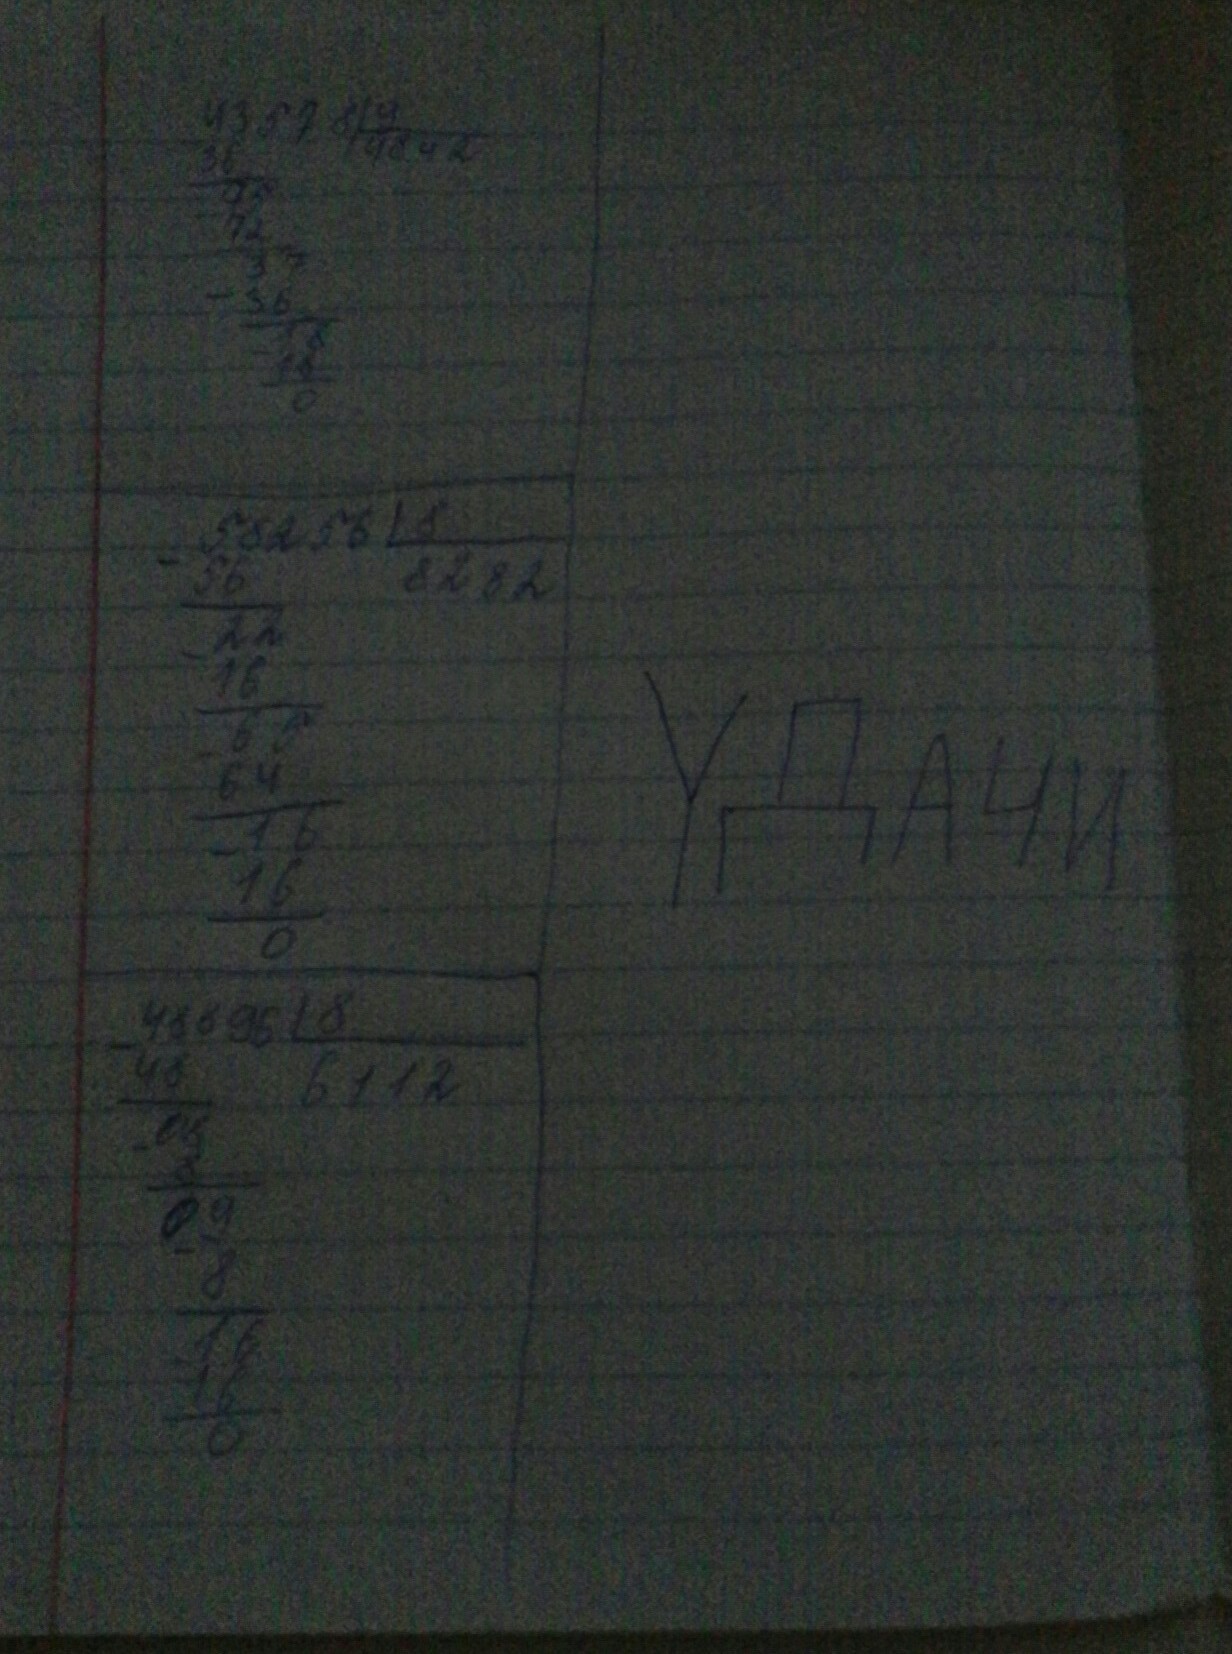 43578 9
36 4842
75
- 72
37
- 36
18
- 18
0
- 58256 8
56 8282
- 22
16
- 65
64
- 16
16
0
- 48896 8
48 6112
- 08
8
09
- 8
- 16
16
0
УДАЧИ